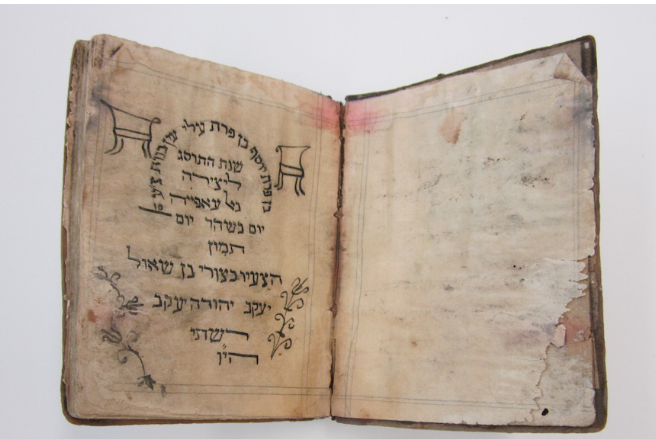 בן פרת יוסף בן פרת עלי עין בנות צעדה
שנת התרסג
ליצירה
יום בשהר יום
תמוז
הצעיר בצורי בן שאול
יעקב יהודה יעקב
רשתי
הי״ו